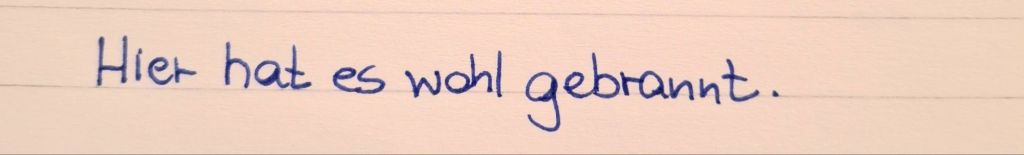 Hier hat es wohl gebrannt.